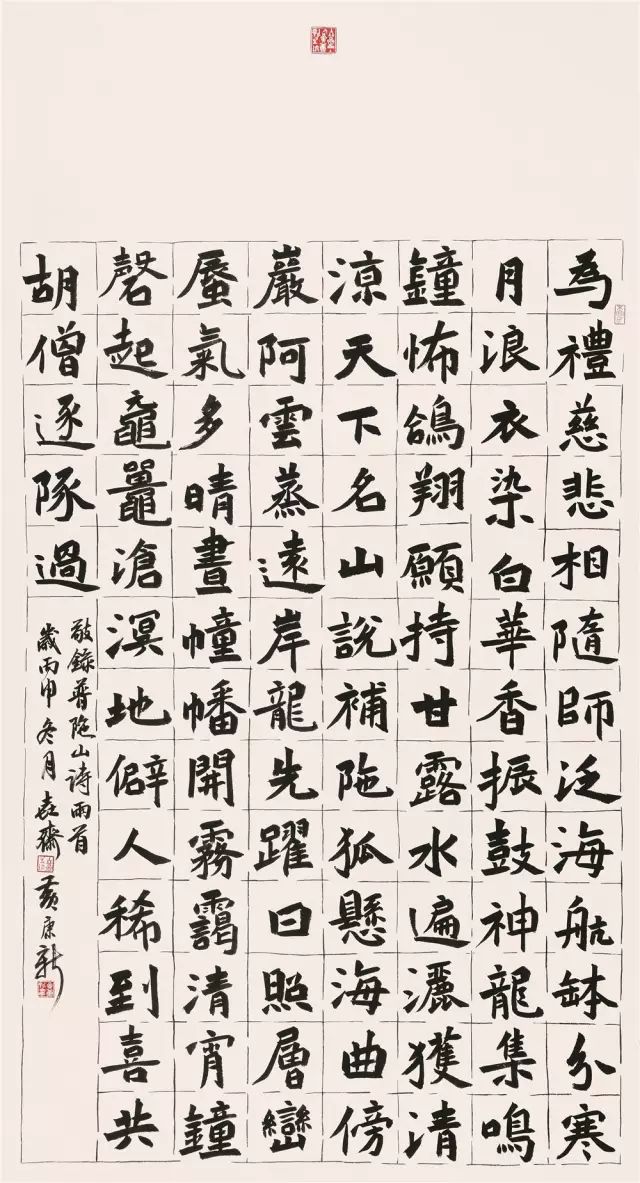 為禮慈悲相隨師泛海航缽分寒
月浪衣染白華香振鼓神龍集鳴
鐘怖鴿翔願持甘露水遍灑獲清
涼天下名山說補陁孤懸海曲傍
巖阿雲蒸遠岸龍先躍日照層巒
蜃氣多晴晝幢幡開霧靄清宵鐘
磬起黿鼉滄溟地僻人稀到喜共
胡僧逐隊過
敬錄普陁山詩兩首
歲丙申冬月
黃康新